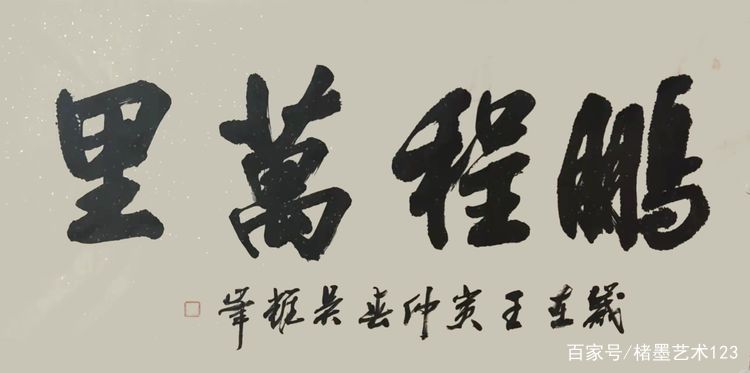 鵬程萬里
歲在壬寅仲春吴振峯
百家号/楮墨艺术123